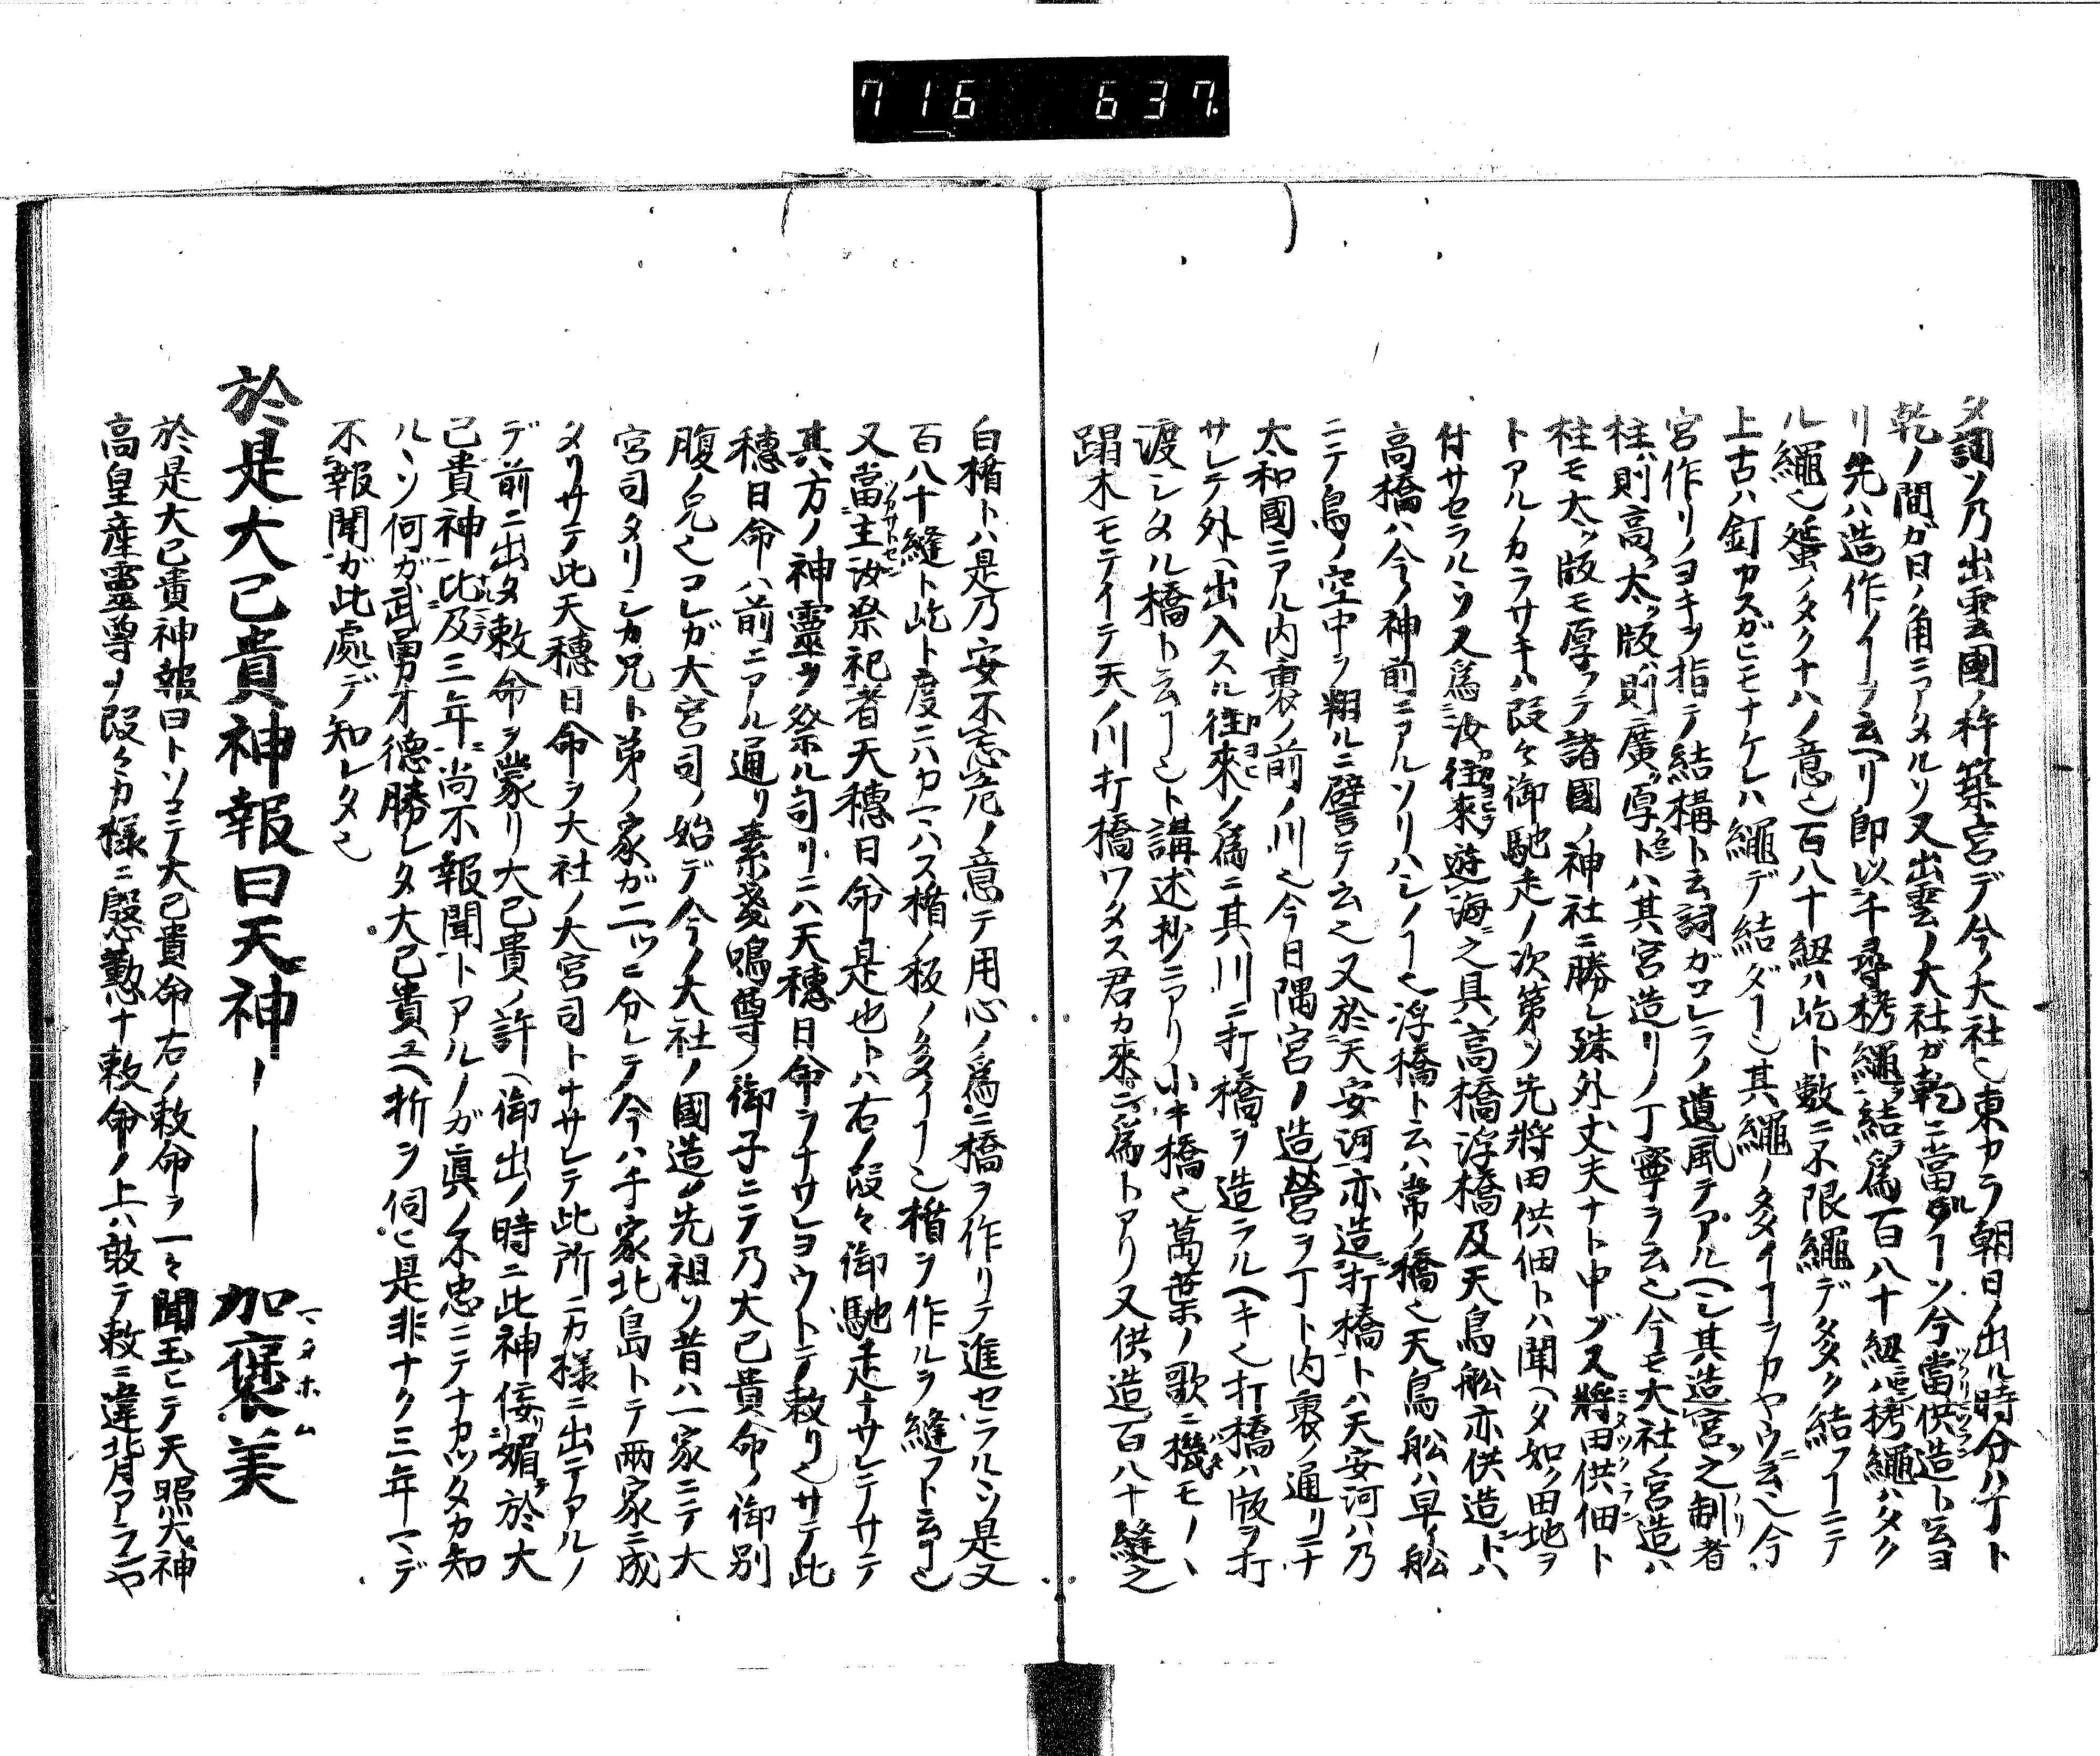 716 637
タ詞ソ乃出雲國ノ杵築宮デ今ノ大社也東カラ朝日ノ出ル時分ハ丁ト
乾ノ間ガ日ノ角ニアタルソ又出雲ノ大社ガ乾ニ當ルヿソ今當供造ト云ヨ
リ先ハ造作ノヿヲ云ヘリ即以千尋栲繩結爲百八十紐ハ栲繩ハタク
ル繩也蜑ノタクナハノ意也百八十紐ハ屹ト數ニ不限繩デタタク結フヿニテ
上古ハ釘カスガヒモナケレハ繩デ結ダヿ也其繩ノ多イヿヲカヤウニ云也今
宮作リノヨキヲ指テ結構ト云詞ガコレラノ遺風テアルヘシ其造宮之制者
柱ハ則高ク大ッ版ハ則廣ッ厚トハ其宮造リノ丁寧ヲ云也今モ大社ノ宮造ハ
柱モ大ッ版モ厚フテ諸國ノ神社ニ勝レ殊外丈夫ナト申ブス將田供佃ト
トアルノカラサキハ段々御馳走ノ次第ソ先將田供佃トハ聞ヘタ如ク田地ヲ
付サセラルソ又爲汝往來遊海之具高橋浮橋及天鳥舩亦供造トハ
高橋ハ今ノ神前ニアルソリハシノヿ也浮橋ト云ハ常ノ橋也天鳥舩ハ早イ舩
ニテ鳥ノ空中ヲ翔ルニ譬テ云也又於天安河亦造打橋トハ天安河ハ乃
太和國ニアル内裏ノ前ノ川也今日隅宮ノ造營ヲ丁ト内裏ノ通リニナ
サレテ外ヘ出入スル往來ノ爲ニ其川ニ打橋ヲ造ラルヘキ也打橋ハ版ヲ打
渡シタル橋ト云ヿ也ト講述抄ニアリ小キ橋也萬葉ノ歌ニ機モノヽ
蹋木モテイテ天ノ川打橋ワタス君カ來ン爲トアリ又供造百八十縫之
白楯トハ是乃安不忘危ノ意テ用心ノ爲ニ橋ヲ作リテ進セラルソ是又
百八十縫ト屹ト度ニハカヽハス楯ノ板ノ多イヿ也楯ヲ作ルヲ縫フト云ヿ也
又當主汝祭祀者天穗日命是也トハ右ノ段々御馳走ナサレテサテ
其方ノ神靈ヲ祭ル司リニハ天穗日命ヲナサレヨウトテ敕リ也サテ此
穗日命ハ前ニアル通リ素戔嗚尊ノ御子ニテ乃大己貴命ノ御別
腹ノ兄也コレガ大宮司ノ始デ今ノ大社ノ國造ノ先祖ソ昔ハ一家ニテ大
宮司タリシカ兄ト弟ノ家ガ二ッニ分レテ今ハ千家北島トテ兩家ニ成
タリサテ此天穗日命ヲ大社ノ大宮司トナサレテ此所ニカ樣ニ出テアルノ
デ前ニ出タ敕命ヲ蒙リ大己貴ノ許ヘ御出ノ時ニ此神侫媚於大
己貴神比及三年尚不報聞トアルノガ眞ノ不忠ニテナカッタカ知
ルソ何ガ武勇才德勝レタ大己貴ユヘ折ヲ伺ヒ是非ナク三年マデ
不報聞ガ此處デ知レタ也
於是大己貴神報曰天神ーーー加褒美
於是大己貴神報曰トソコテ大己貴命右ノ敕命ヲ一々聞玉ヒテ天照大神
高皇産靈尊ノ段々カ樣ニ慇懃ナ敕命ノ上ハ敢テ敕ニ違背アラフヤ